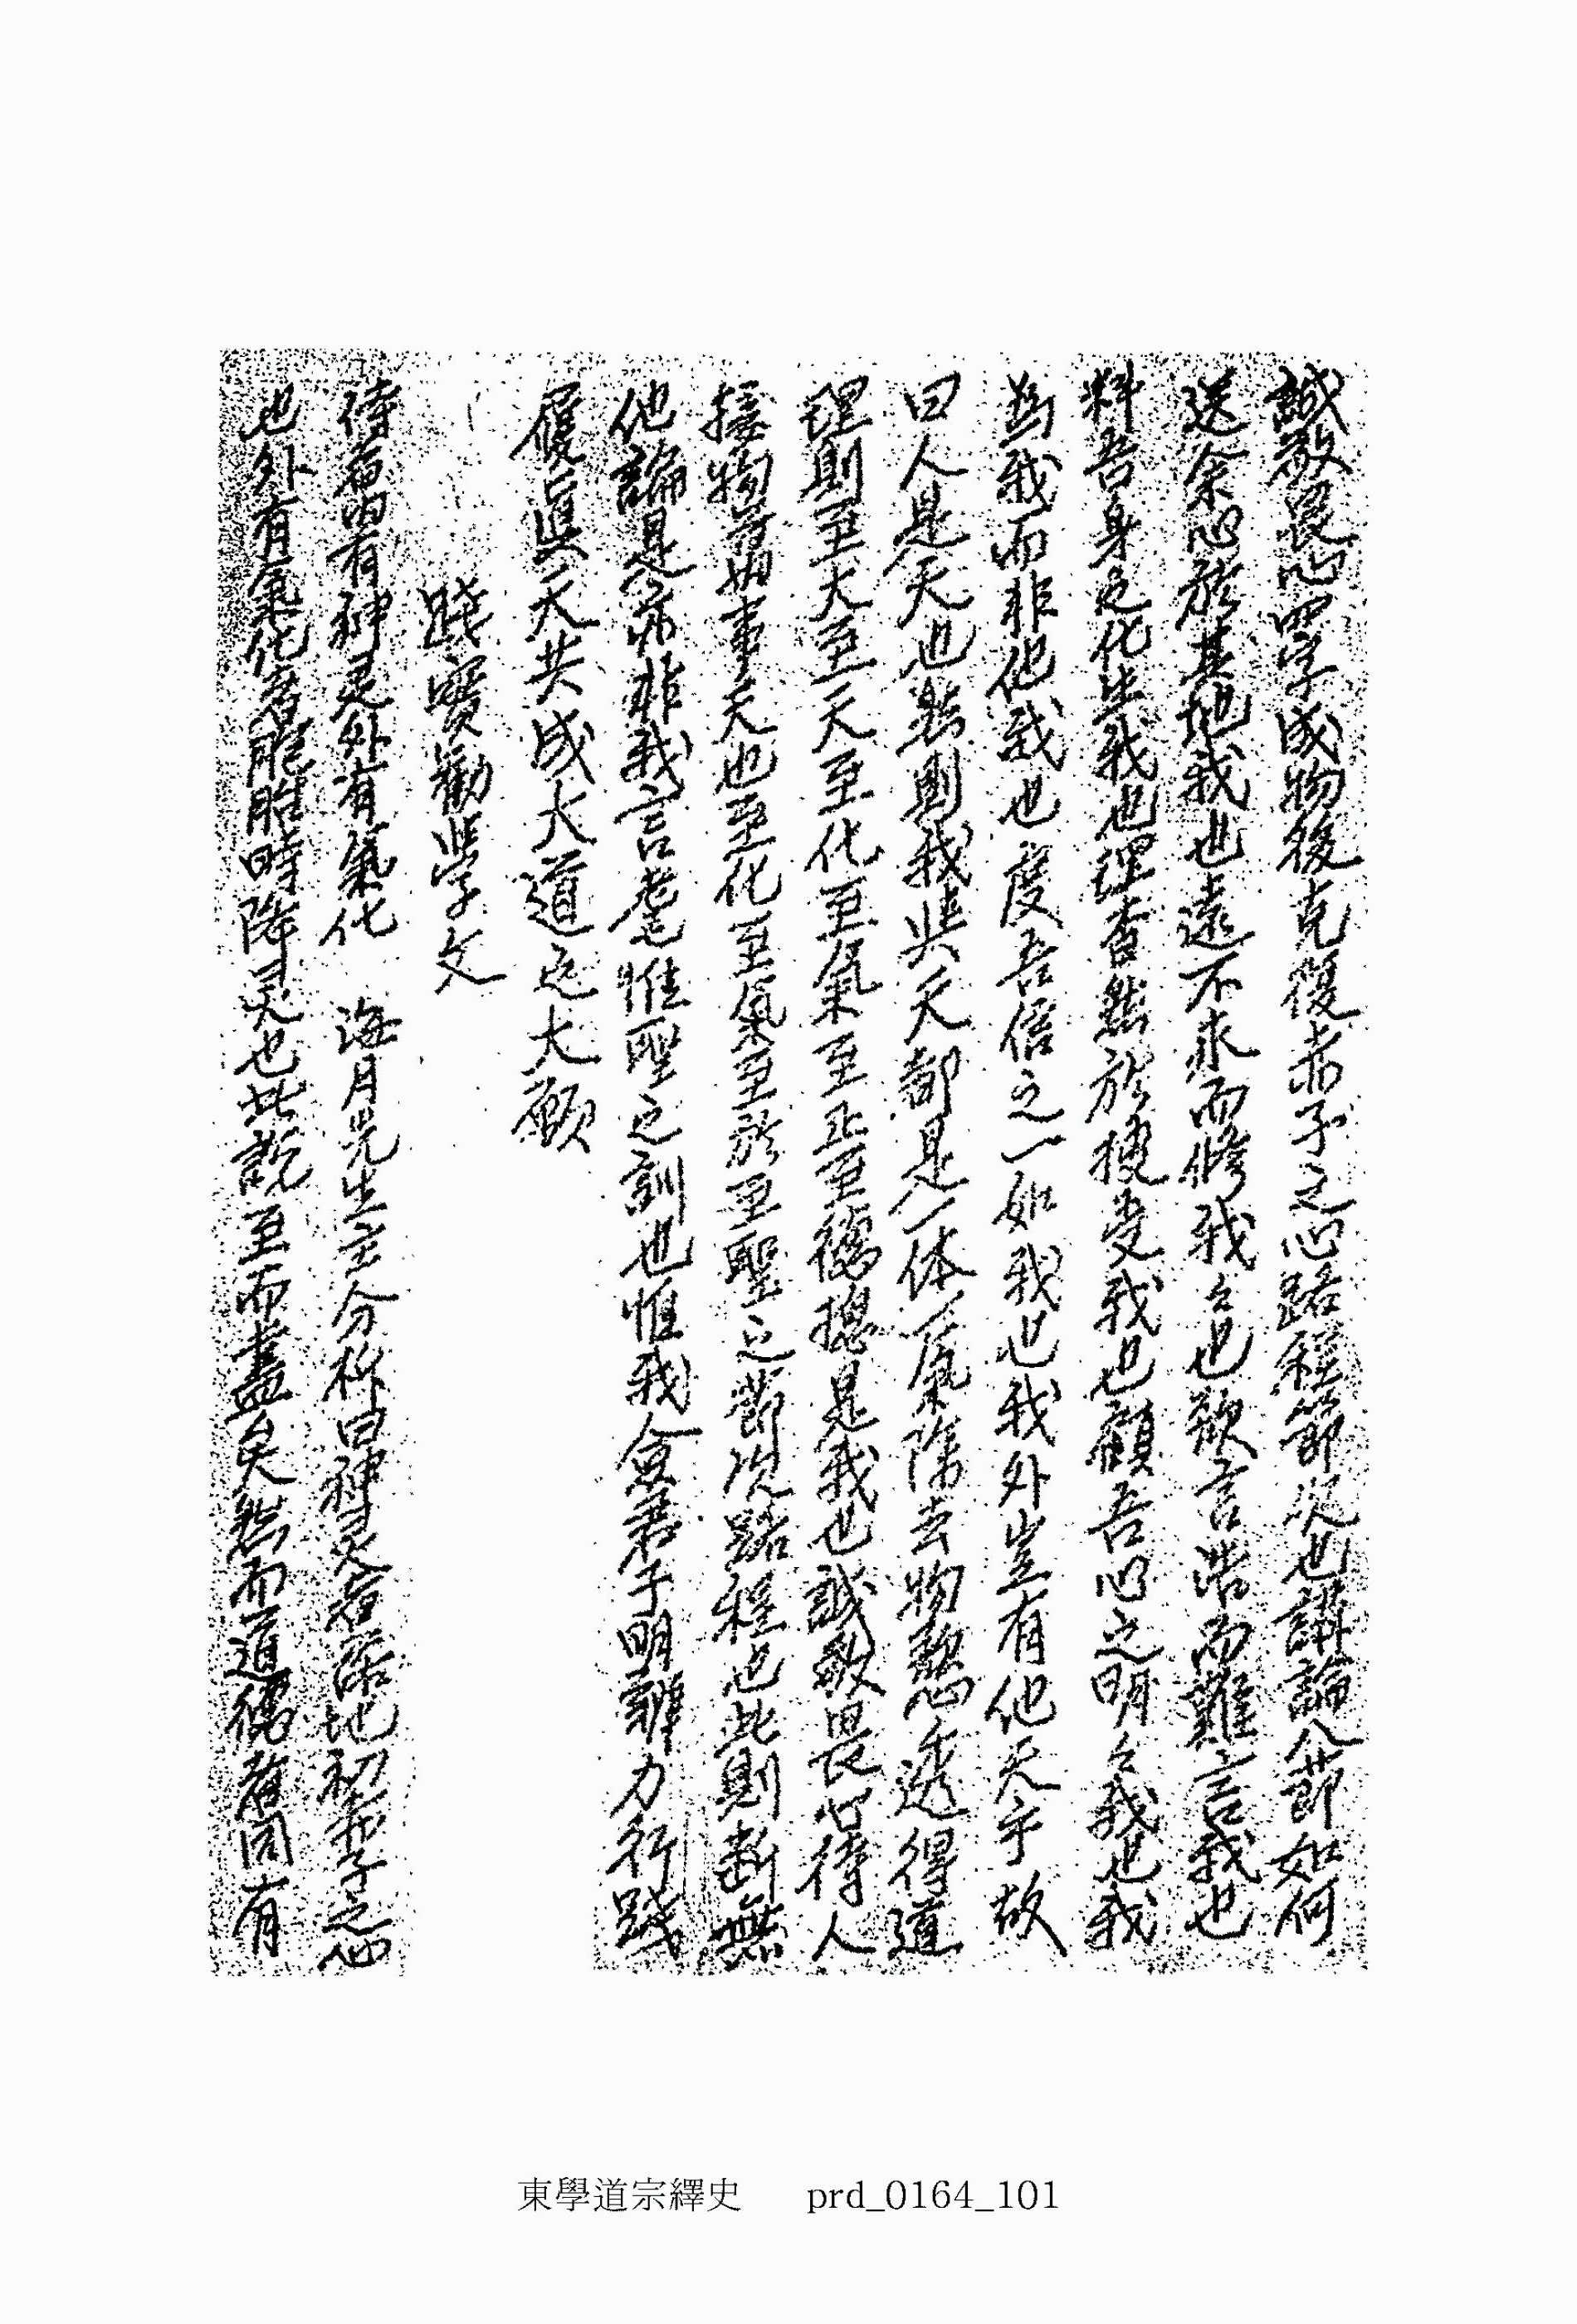 誠敬畏心四字成物後克復赤子之心路程節次也講論八節如何
送余心於其地我也遠不求而修我々也歎言浩而難言我也
料吾身之化生我也理杳然於捷受我也顧吾心之明々我也我
爲我而非他我也度吾信之一如我也我外豈有他天乎故
曰人是天也然則我與天都是一体一氣除去物慾透得道
理則至大至天至化至氣至正至德摠是我也誠敬畏心待人
接物萬事天也至化至氣至於至聖之節次路程也此則斷無
他論是亦非我言耄惟聖之訓也惟我僉君子明辨力行踐
履眞天共成大道之大願
踐實勸學文
侍者內有神灵外有氣化 海月先生主分析曰神灵者落地初赤子之心
也外有氣化者胞胎時降灵也此說至而盡矣然而道德者固有
東學道宗繹史 prd_0164_101